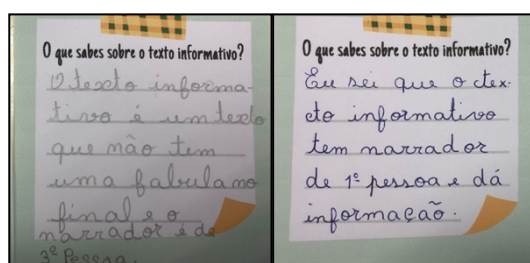 O que sabes sobre o texto informativo?
O texto informa-
tivo é um texto
que não tem
uma fabula no
final e o
narrador é de
3ª Pessoa.
O que sabes sobre o texto informativo?
Eu sei que o tex-
to informativo
tem narrador
de 1ª pessoa e dá
informação.